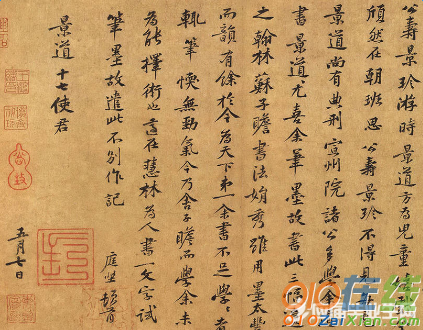 公壽景珍游時景道方為兒童
頎然在朝班思公壽景珍不得見
景道尚有典刑宣州院諸公多學余
書景道尤喜余筆墨故書此三幅遺
之翰林蘇子瞻書法娟秀雖用墨太豐
而韻有餘於今為天下第一余書不足學學者
輒筆愞無勁氣今乃舍子瞻而學余未
為能擇術也適在慧林為人書一文字試
筆墨故遣此不別作記
庭堅頓首
景道十七使君
五月七日
在线